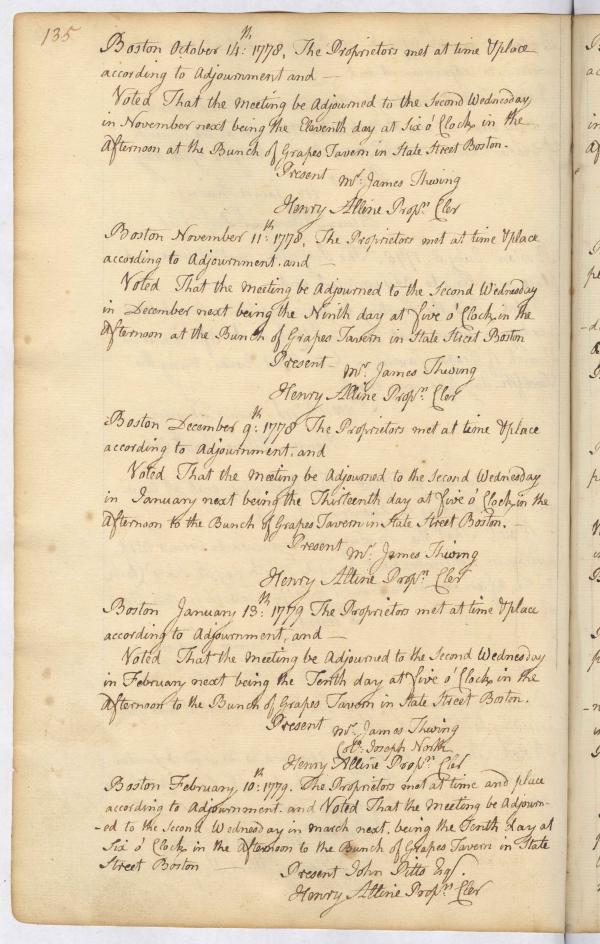 135
Boston October 14th: 1778, The Proprietors met at time & place
according to Adjournment and —
Voted That the meeting be Adjourned to the Second Wednesday
in November next being the Eleventh day at Six o' Clock in the
Afternoon at the Bunch of Grapes Tavern in State Street Boston.
Present Mr. James Thwing
Henry Alline Propn. Cler
Boston November 11th: 1778, The Proprietors met at time & place
according to Adjournment. and —
Voted That the meeting be Adjourned to the Second Wednesday
in December next being the Ninth day at five o' Clock in the
Afternoon at the Bunch of Grapes Tavern in State Street Boston
Present Mr. James Thwing
Henry Alline Propn. Cler
Boston December 9th: 1778 The Proprietors met at time & place
according to Adjournment. and
Voted That the meeting be Adjourned to the Second Wednesday
in January next being the Thirteenth day at five o' Clock in the
Afternoon to the Bunch of Grapes Tavern in State Street Boston. —
Present Mr. James Thwing
Henry Alline Propn. Cler
Boston January 13th: 1779 The Proprietors met at time & place
according to Adjournment, and —
Voted That the meeting be Adjouned to the Second Wednesday
in February next being the Tenth day at five o' Clock in the
Afternoon to the Bunch of Grapes Tavern in State Street Boston.
Present Mr. James Thwing
Colo. Joseph North
Henry Alline Propn. Cler
Boston February 10th: 1779. The Proprietors met at time and place
according to Adjournment. and Voted That the meeting be Adjourn-
-ed to the Second Wednesday in march next, being the Tenth day at
Six o' Clock in the Afternoon to the Bunch of Grapes Tavern in State
Street Boston —
Present John Pitts Esqr.
Henry Alline Propn. Cler